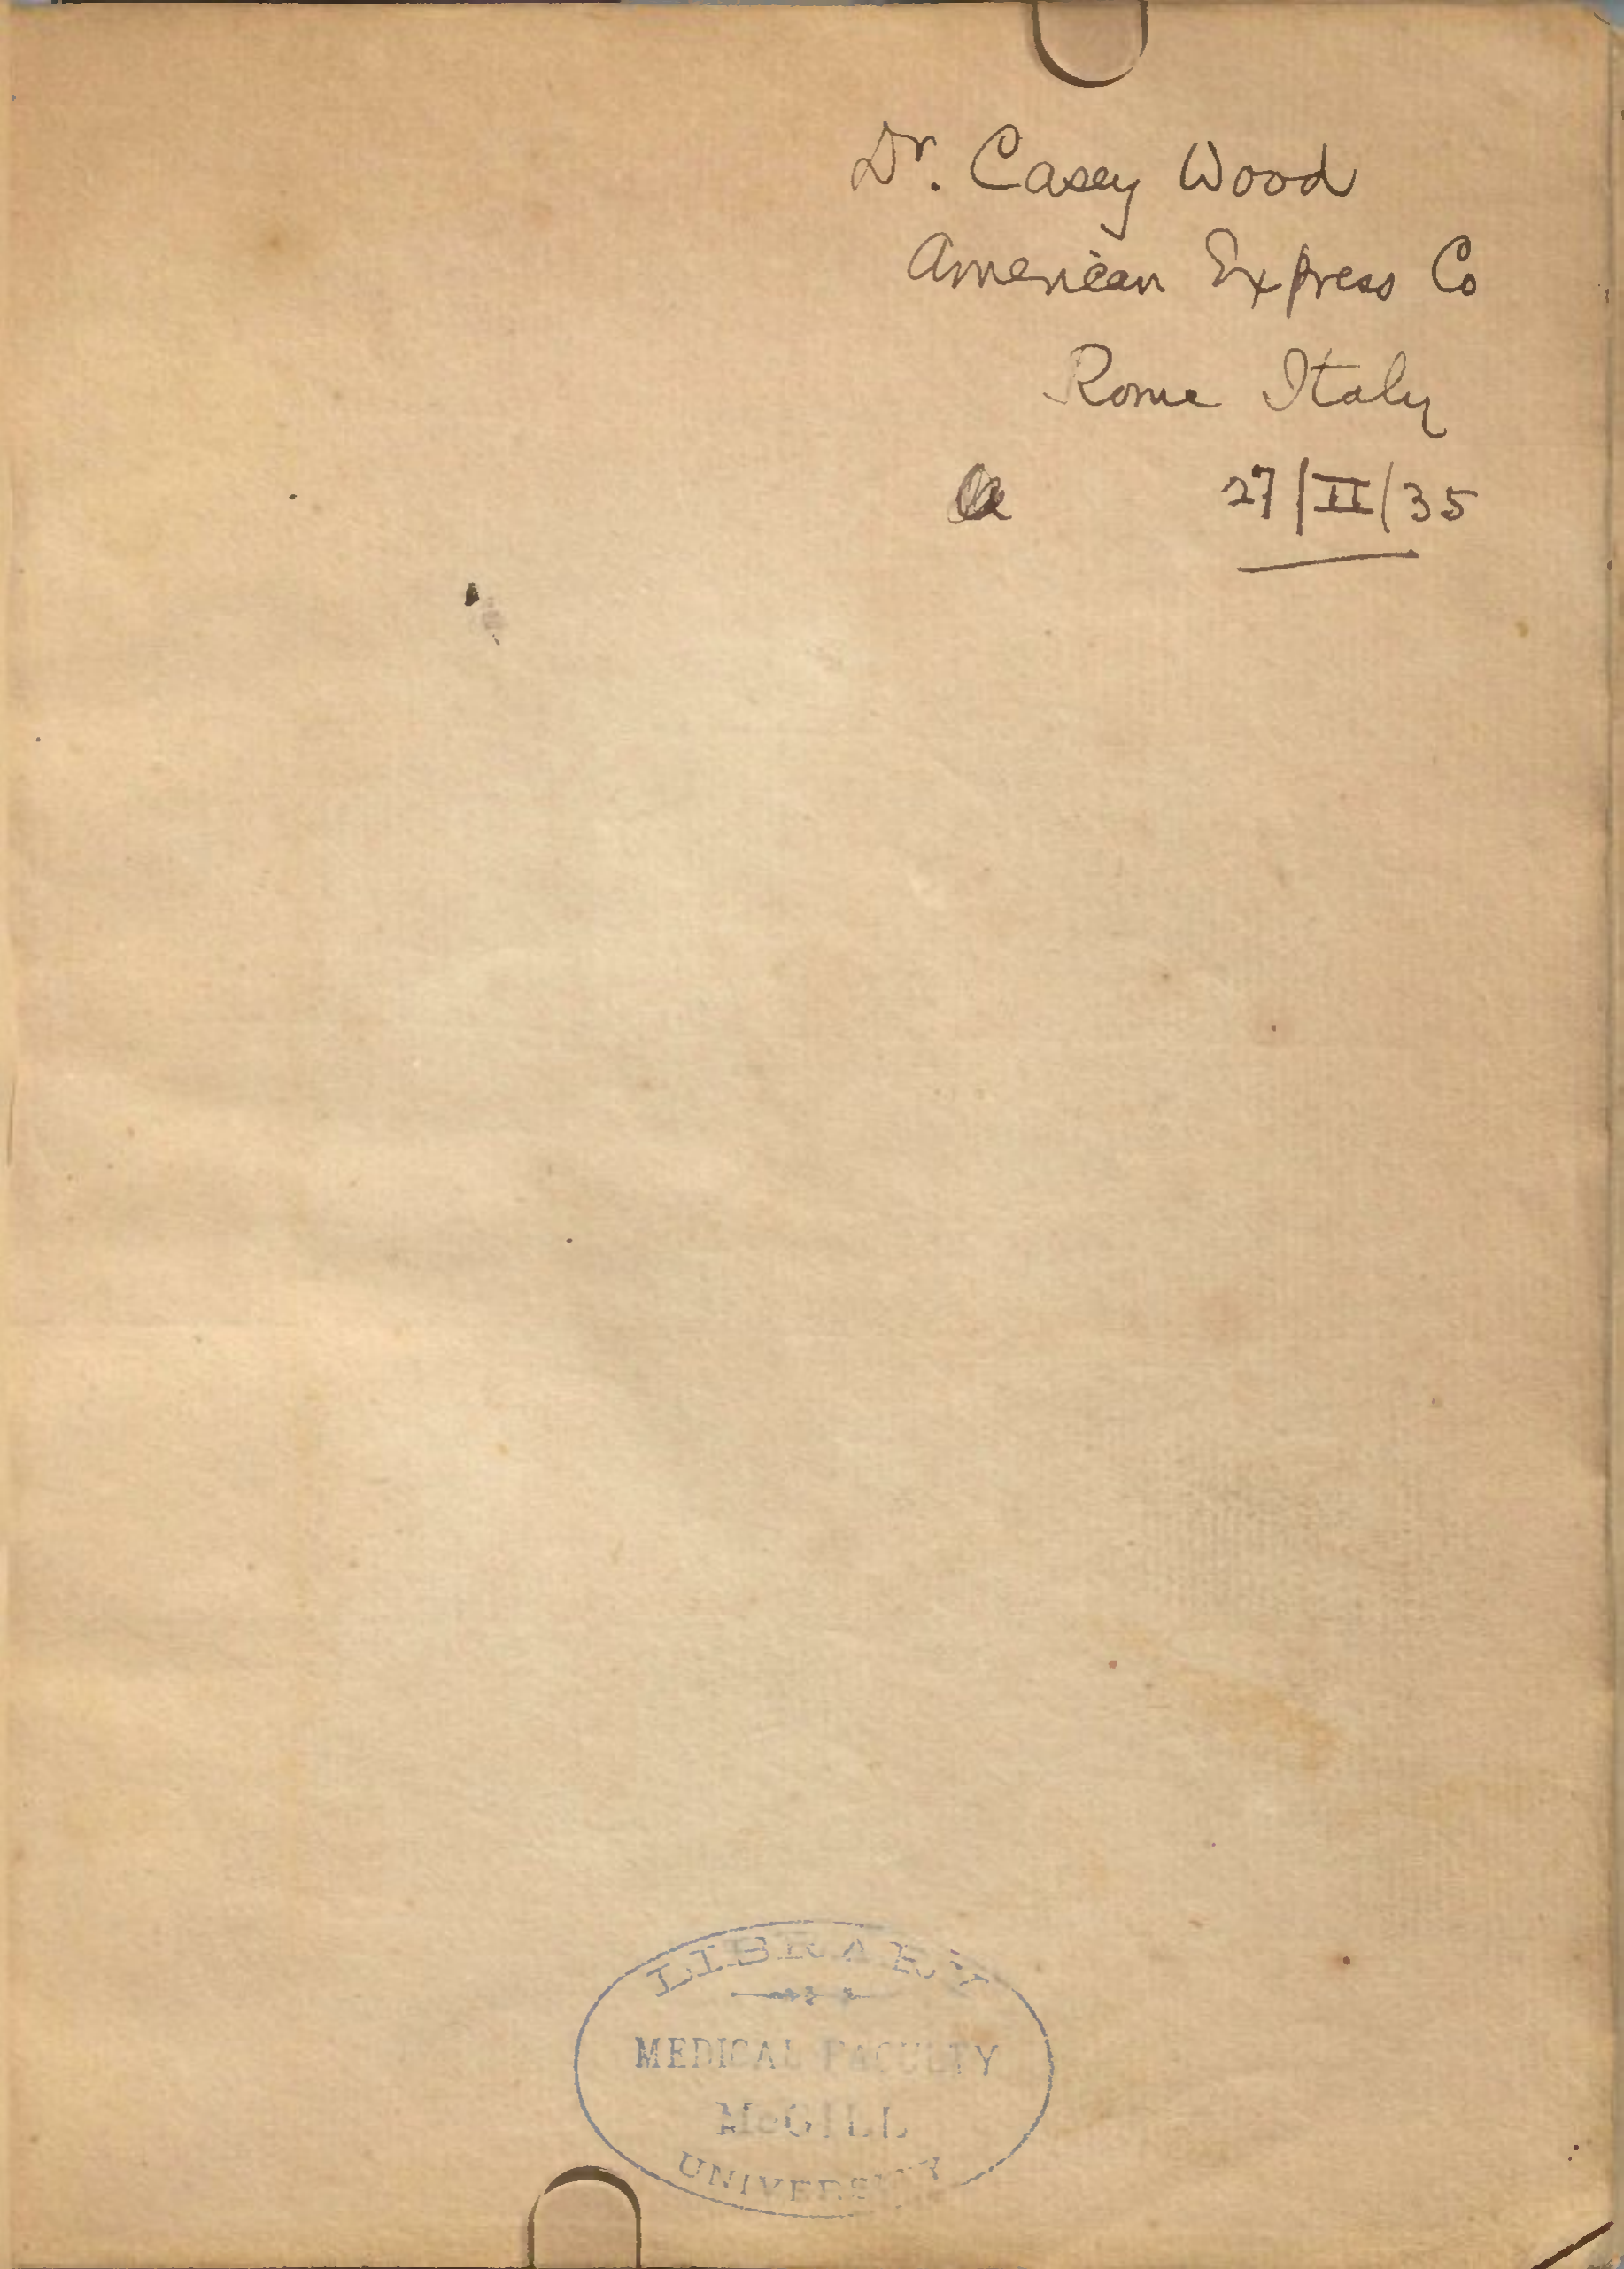 Dr. Casey Wood
American Express Co
Rome Italy
27/II/35
LIBRARY
MEDICAL FACULTY
McGILL
UNIVERSITY